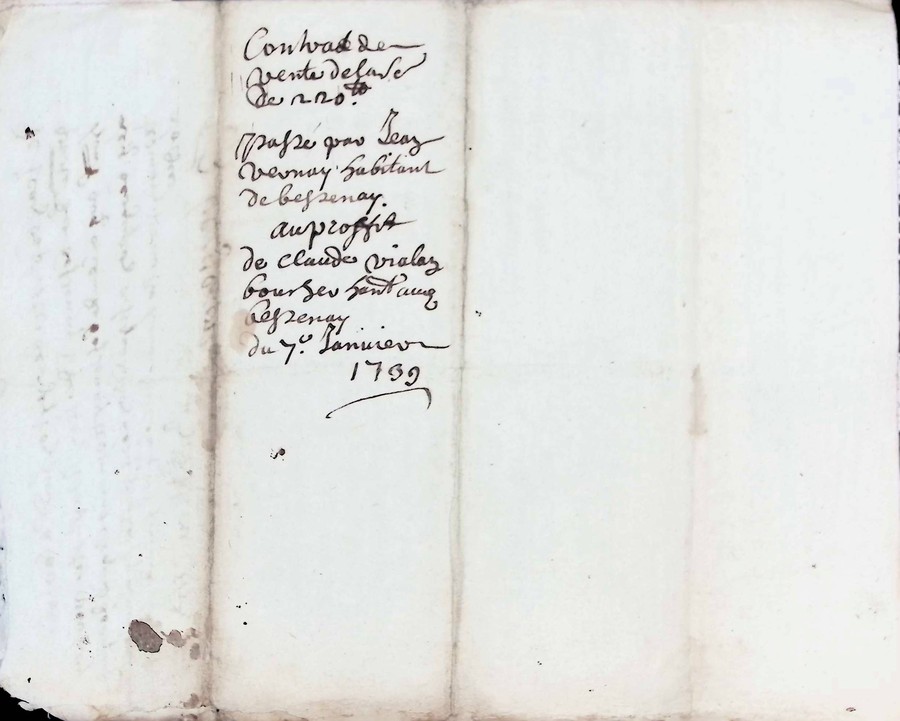 Contract de
vente de
de 220 ᵗᵗ
passé par Jean
vernay habitant
de bessenay.
au proffit
de claude vialon
boucher hant aud
bessenay
du 7e. Janvier
1739